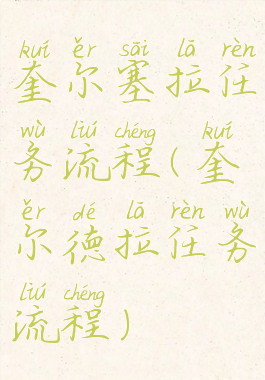 kuí ěr sāi lā rèn
奎尔塞拉任
wù liú chéng kuí
务流程(奎
ěr dé lā rèn wù
尔德拉任务
liú chéng
流程)